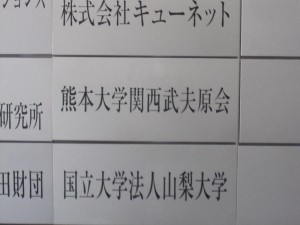 ションズ
株式会社キューネット
熊本大学関西武夫原会
研究所
田財団
国立大学法人山梨大学